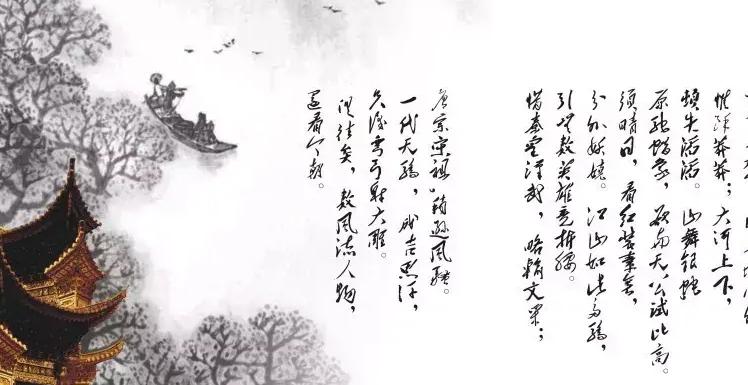 惟余莽莽；大河上下，
顿失滔滔。山舞银蛇
原驰蜡象，欲与天公试比高。
须晴日，看红装素裹，
分外妖娆。江山如此多骄，
引无数英雄竞折腰。
惜秦皇汉武，略输文采；
唐宗宋祖，稍逊风骚。
一代天骄，成吉思汗，
只识弯弓射大雕。
俱往矣，数风流人物，
还看今朝。